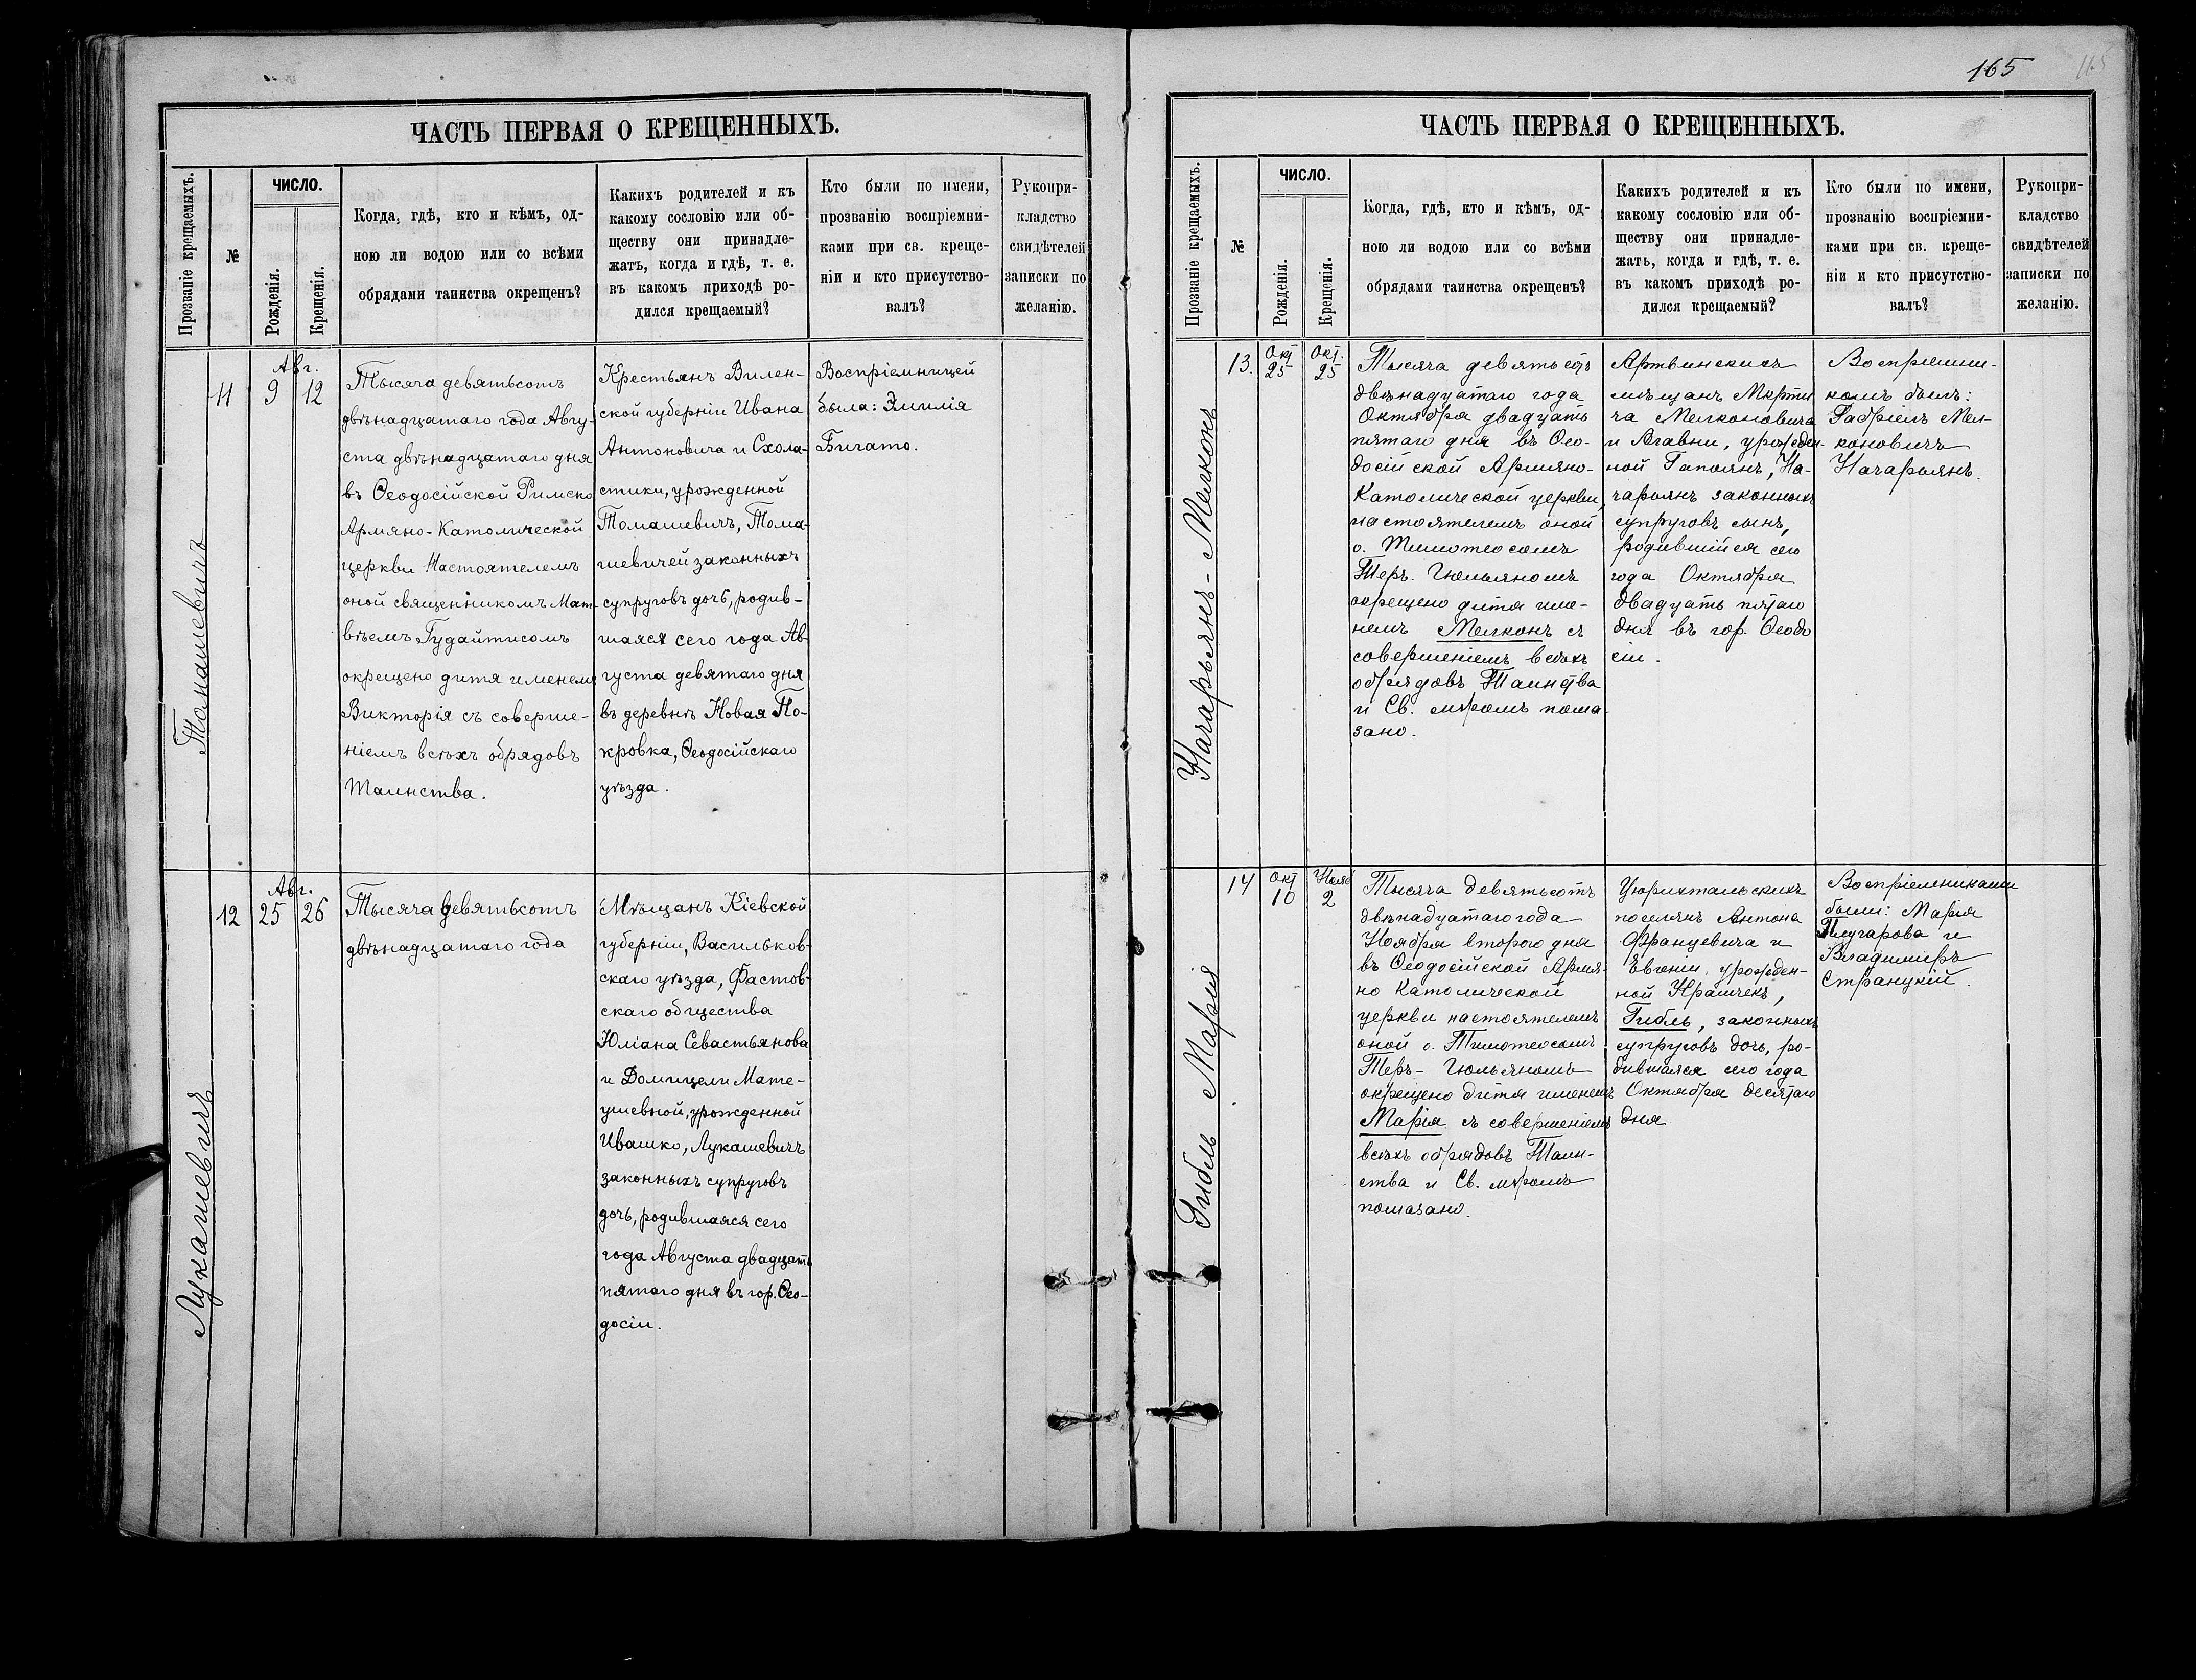 ЧАСТЬ ПЕРВАЯ О КРЕЩЕННЫХЪ.
Прозваніе крещаемыхъ.
№
ЧИСЛО.
Рожденія.
Крещенія.
Когда, гдѣ, кто и кѣмъ, од-
ною ли водою или со всѣми
обрядами таинства окрещенъ?
Какихъ родителей и къ
какому сословію или об-
ществу они принадле-
жатъ, когда и гдѣ, т. е.
въ какомъ приходѣ ро-
дился крещаемый?
Кто были по имени,
прозванію воспріемни-
ками при св. креще-
ніи и кто присутство-
валъ?
Рукопри-
кладство
свидѣтелей
записки по
желанію.
Томашевичъ
11
Авг.
9 12
Тысяча девятьсотъ
двѣнадцатаго года Авгу-
ста двѣнадцатаго дня
въ Ѳеодосійской Римско
Армяно-Католической
церкви Настоятелемъ
оной священникомъ Мат-
вѣемъ Гудайтисомъ
окрещено дитя именемъ
Викторія съ соверше-
ніемъ всѣхъ обрядовъ
Таинства.
Крестьянъ Вилен-
ской губерніи Ивана
Антоновича и Схола-
стики, урожденной
Томашевичъ, Тома-
шевичей законныхъ
супруговъ дочь, родив-
шаяся сего года Ав-
густа девятаго дня
въ деревнѣ Новая По-
кровка, Ѳеодосійскаго
уѣзда.
Воспріемницей
была: Эмилія
Бигато.
Лукашевичъ
12
Авг.
25 26
Тысяча девятьсотъ
двѣнадцатаго года
Мѣщанъ Кіевской
губерніи, Васильков-
скаго уѣзда, Фастов-
скаго общества
Юліана Севастьянова
и Домицели Мате-
ушевной, урожденной
Ивашко, Лукашевичъ
законныхъ супруговъ
дочь, родившаяся сего
года Августа двадцать
пятаго дня въ гор. Ѳео-
досіи.
165
165
ЧАСТЬ ПЕРВАЯ О КРЕЩЕННЫХЪ.
Прозваніе крещаемыхъ.
№
ЧИСЛО.
Рожденія.
Крещенія.
Когда, гдѣ, кто и кѣмъ, од-
ною ли водою или со всѣми
обрядами таинства окрещенъ?
Какихъ родителей и къ
какому сословію или об-
ществу они принадле-
жатъ, когда и гдѣ, т. е.
въ какомъ приходѣ ро-
дился крещаемый?
Кто были по имени,
прозванію воспріемни-
ками при св. креще-
ніи и кто присутство-
валъ?
Рукопри-
кладство
свидѣтелей
записки по
желанію.
Начарьянъ-Мелконъ
13.
Окт
25
Окт.
25
Тысяча девятьсотъ
двѣнадцатаго года
Октября двадцать
пятаго дня въ Ѳео-
досійской Армяно-
Католической церкви,
настоятелемъ оной
о. Тимотеосомъ
Теръ-Гюльяномъ
окрещено дитя име-
немъ Мелконъ съ
совершеніемъ всѣхъ
обрядовъ Таинства
и Св. мѵромъ пома-
зано.
Артвинскихъ
мѣщанъ Мкрти
ча Мелконовича
и Агавни, урожден-
ной Гапоянъ, На-
чарьянъ законныхъ
супруговъ сынъ,
родившійся сего
года Октября
двадцать пятаго
дня въ гор. Ѳеодо
сіи.
Воспріемни-
комъ былъ:
Габріелъ Мел-
коновичъ
Начарьянъ.
Гибль Марія
14
Окт
10
Нояб
2
Тысяча девятьсотъ
двѣнадцатаго года
Ноября второго дня
въ Ѳеодосійской Армя-
но Католической
церкви настоятелемъ
оной о. Тимотеосомъ
Теръ-Гюльяномъ
окрещено дитя именемъ
Марія съ совершеніемъ
всѣхъ обрядовъ Таин-
ства и Св. мѵромъ
помазано.
Цюрихтальскихъ
поселянъ Антона
Францевича и
Евгеніи, урожден-
ной Крашчекъ,
Гибль, законныхъ
супруговъ дочь, ро-
дившаяся сего года
Октября десятаго
дня
Воспріемниками
были: Марія
Плугарова и
Владимиръ
Страцкій.